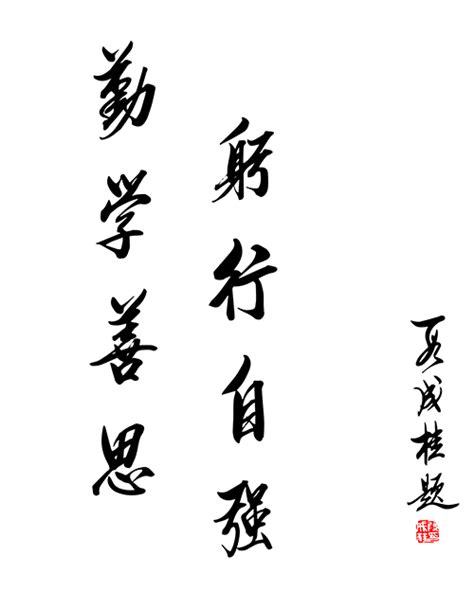 勤学善思
躬行自强
段成桂题